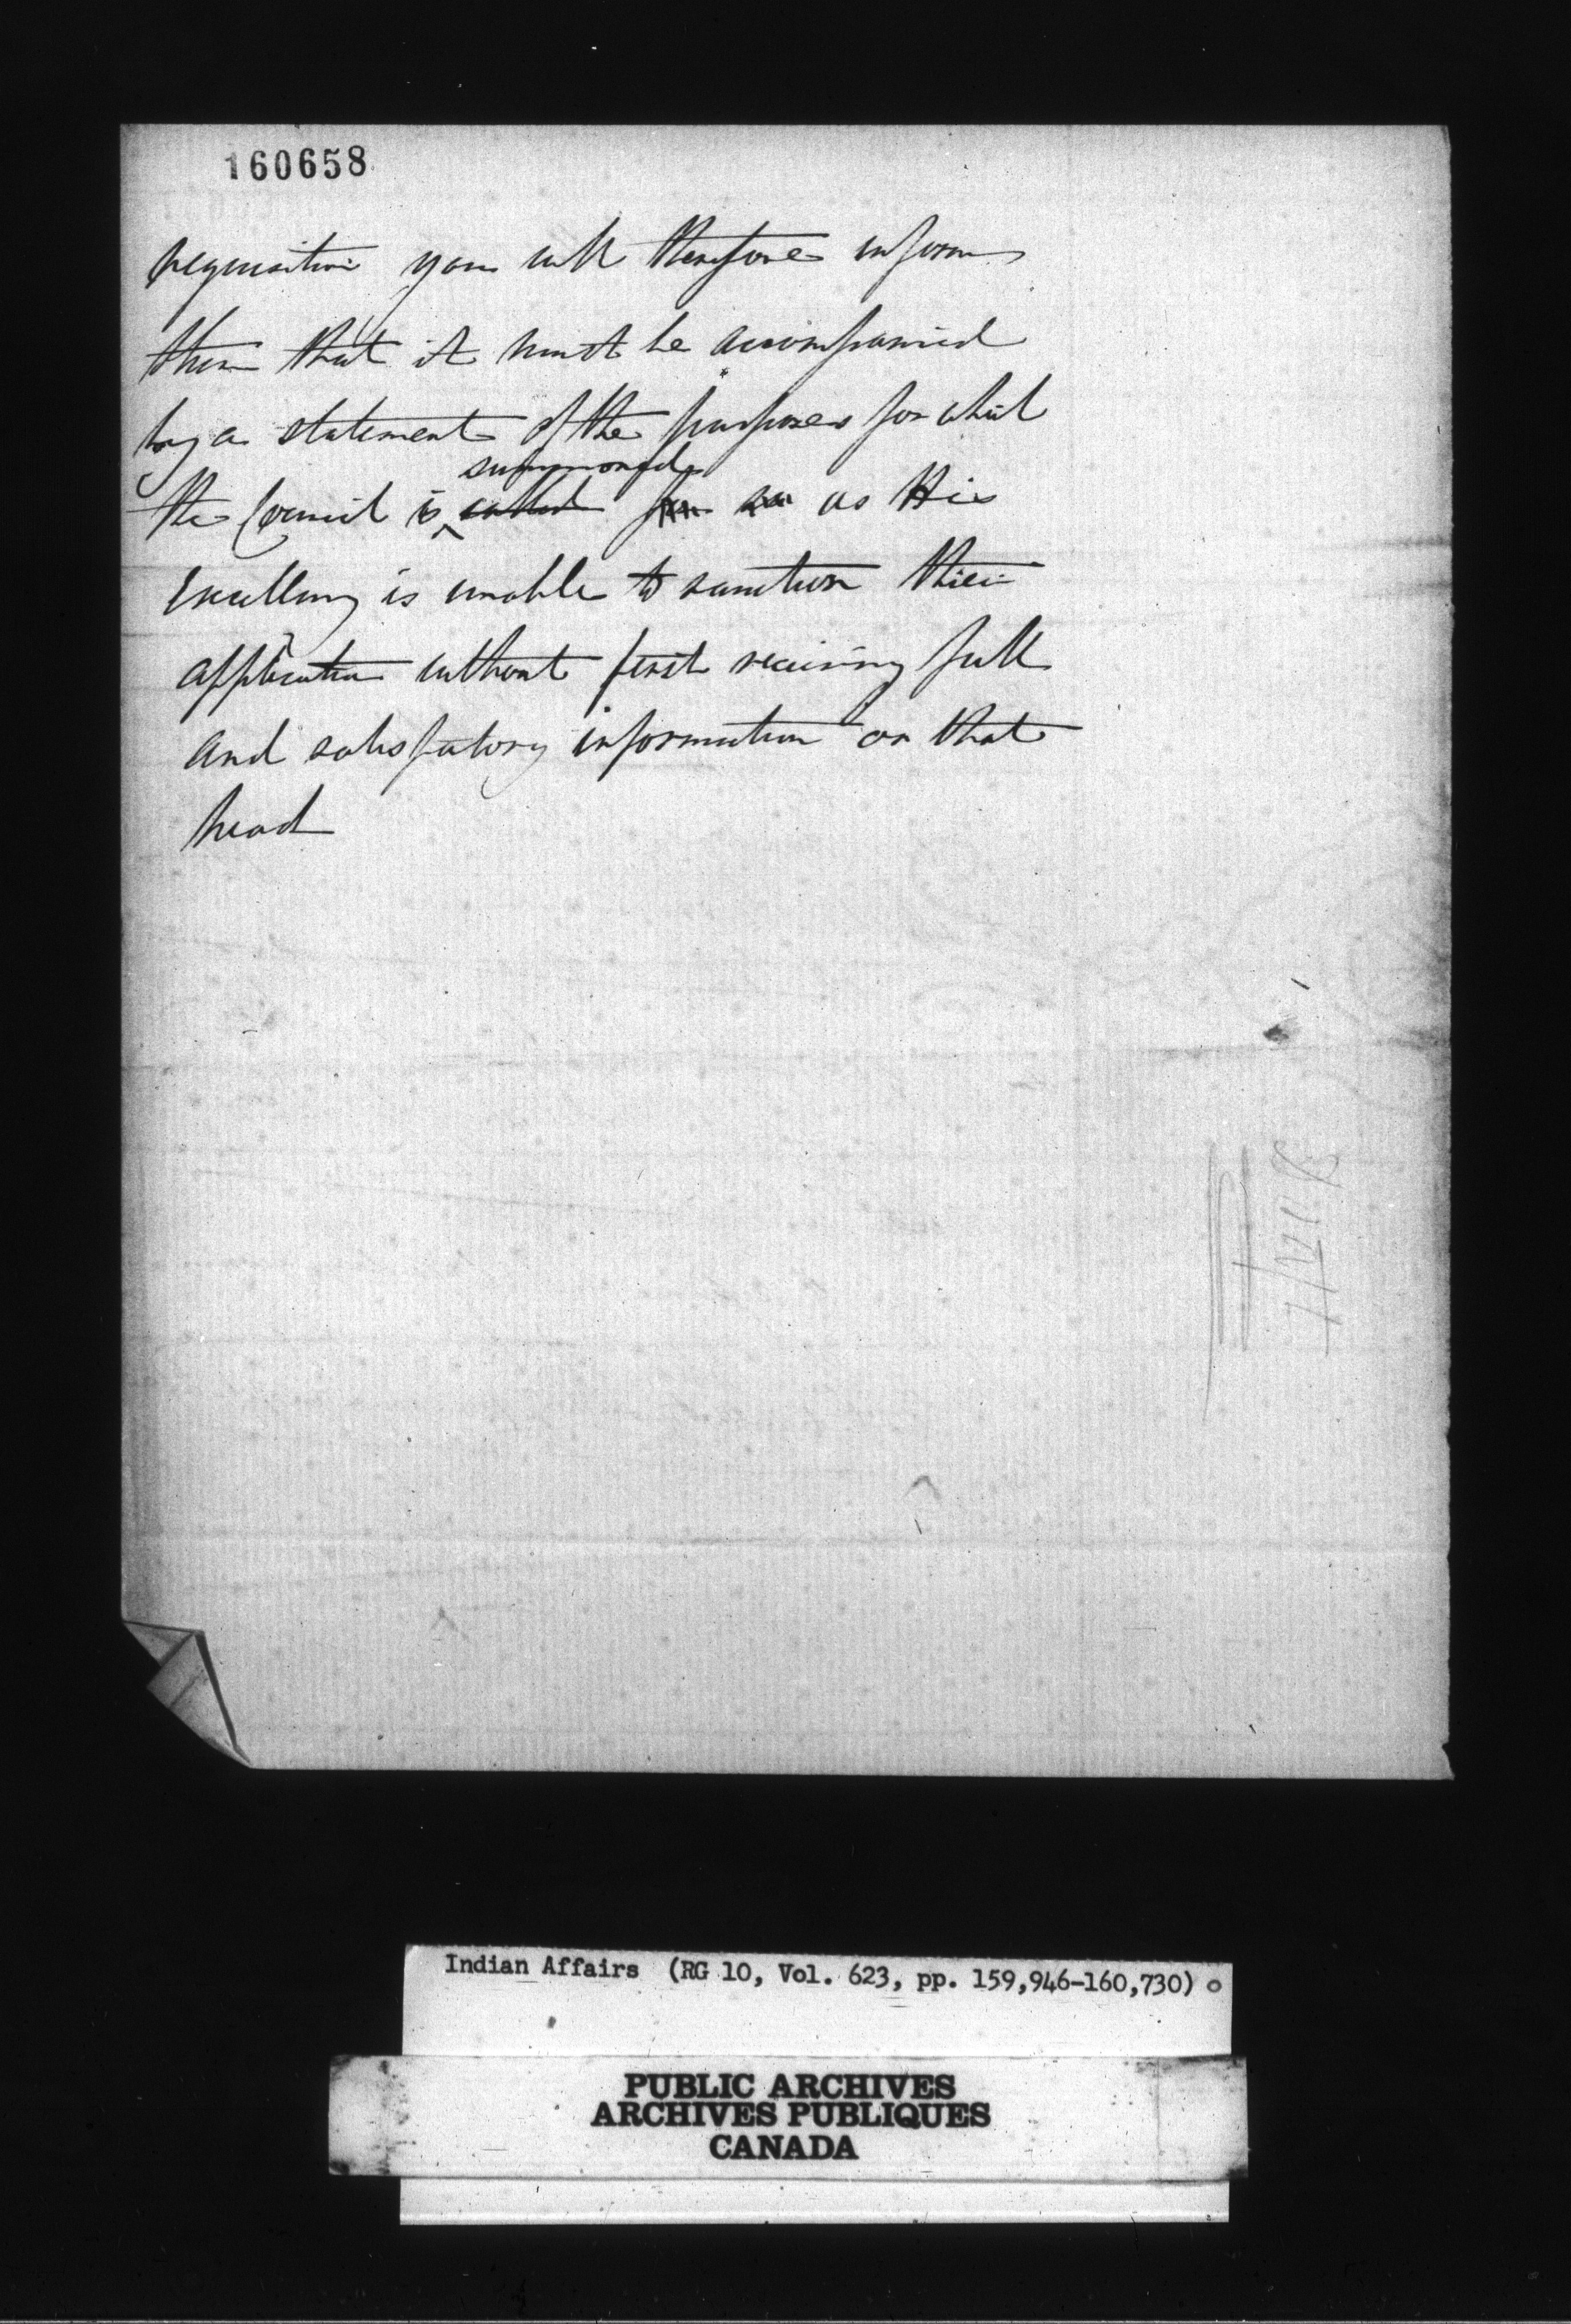 160658
requisition you will therefore inform
them that it must be accompanied
by a statement of the purposes for which
summoned
the Council is called for as His
Excellency is unable to sanction their
application without first receiving full
and satisfactory information on that
head
Indian Affairs (RG 10, Vol. 623, pp. 159,946-160,730)
PUBLIC ARCHIVES
ARCHIVES PUBLIQUES
CANADA